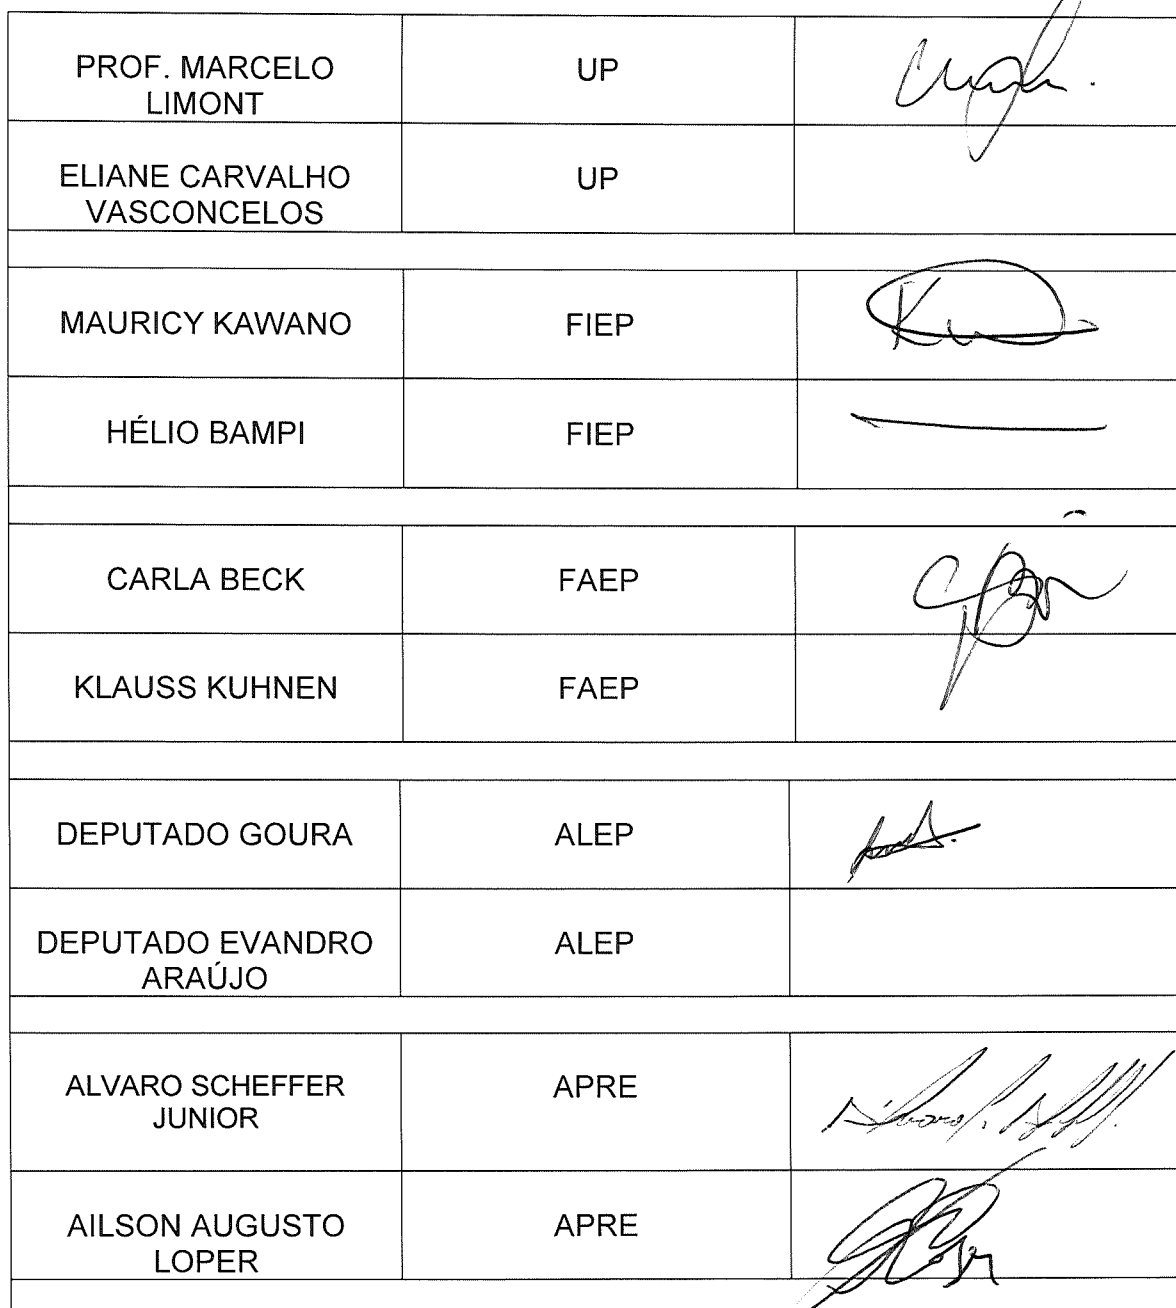 PROF. MARCELO
LIMONT
UP
ELIANE CARVALHO
VASCONCELOS
UP
MAURICY KAWANO
FIEP
HÉLIO BAMPI
FIEP
CARLA BECK
FAEP
KLAUSS KUHNEN
FAEP
DEPUTADO GOURA
ALEP
DEPUTADO EVANDRO
ARAÚJO
ALEP
ALVARO SCHEFFER
JUNIOR
APRE
AILSON AUGUSTO
LOPER
APRE